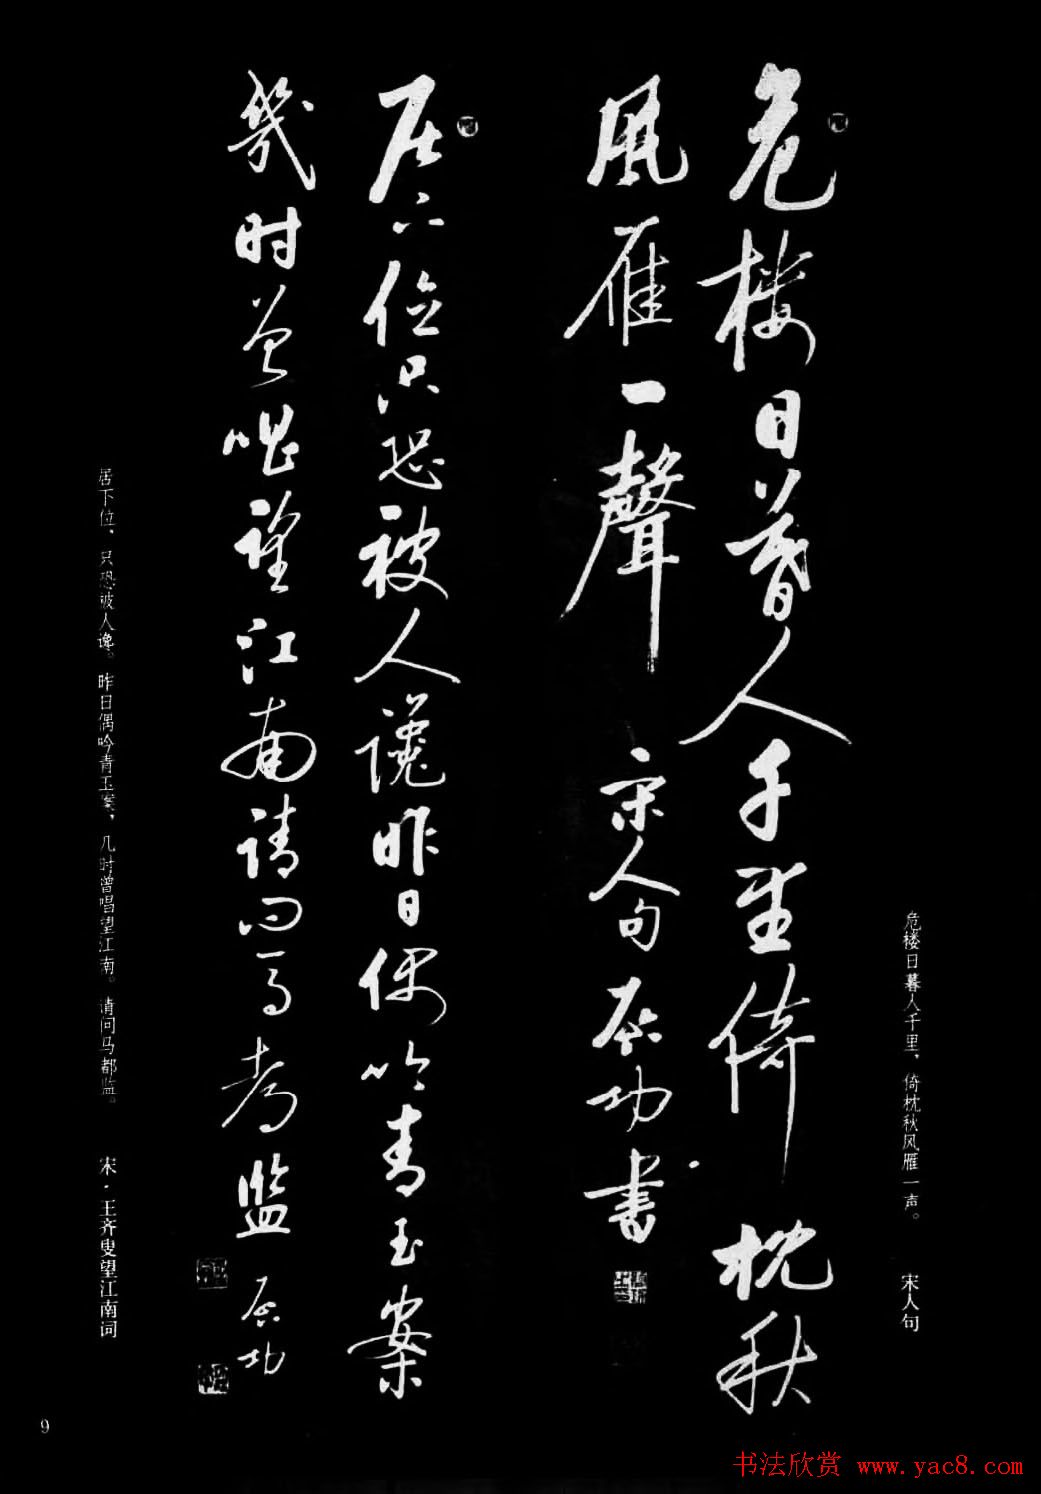 危楼日暮人千里倚枕秋
风雁一聲
宋人句启功书
危楼日暮人千里，倚枕秋风雁一声。
宋人句
居下位只恐被人谗昨日偶吟青玉案
幾时曾唱望江南请问马都监
启功
居下位，只恐被人谗。昨日偶吟青玉案，几时曾唱望江南。请问马都监。
宋·王齐叟望江南词
9
书法欣赏 www.yac8.com